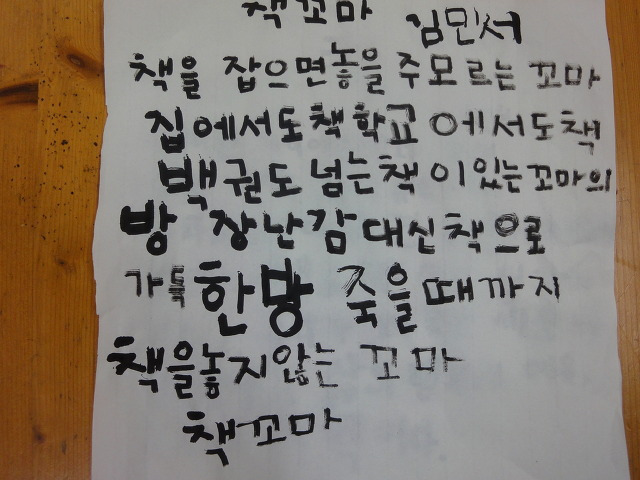 책꼬마
김민서
책을 잡으면놓을 주모르는 꼬마
집에서도책학교에서도책
백권도넘는책이있는꼬마의
방 장난감대신책으로
가득한망 죽을때까지
책을놓지않는 꼬마
책꼬마